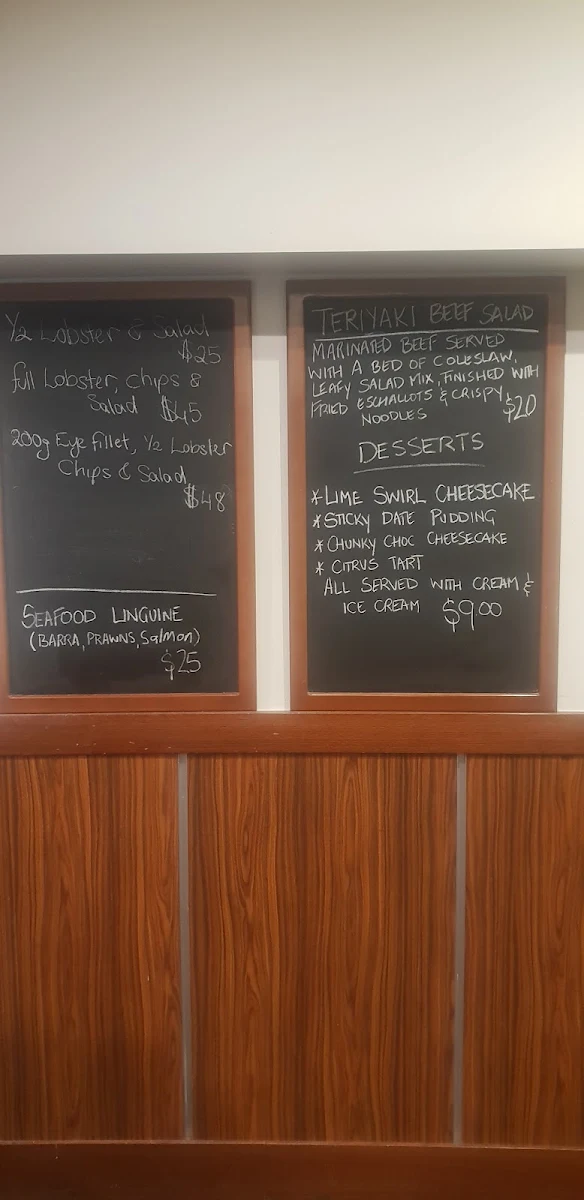 1/2 Lobster & Salad
$25
full Lobster, chips &
Salad $45
200g Eye fillet, 1/2 Lobster
Chips & Salad
$48
SEAFOOD LINGUINE
(BARRA, PRAWNS, Salmon)
$25
TERIYAKI BEEF SALAD
MARINATED BEEF SERVED
WITH A BED OF COLESLAW,
LEAFY SALAD MIX, FINISHED WITH
FRIED ESCHALLOTS & CRISPY
NOODLES $20
DESSERTS
* LIME SWIRL CHEESECAKE
* STICKY DATE PUDDING
* CHUNKY CHOC CHEESECAKE
* CITRUS TART
ALL SERVED WITH CREAM &
ICE CREAM $9.00